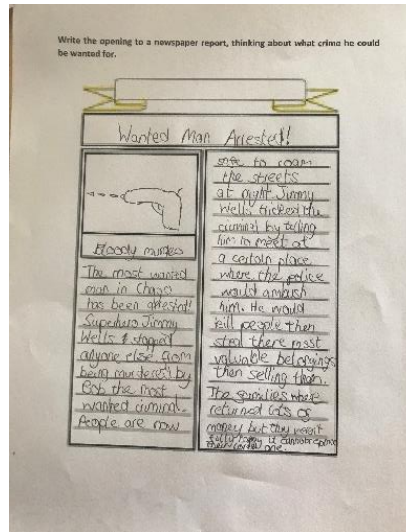 Write the opening to a newspaper report, thinking about what crime he could
be wanted for.
Wanted Man Arrested!
Bloody murders
The most wanted
man in Chaos
has been arrested!
Superhero Jimmy
Wells stopped
anyone else from
being murdered by
Bob the most
wanted criminal.
People are now
safe to roam
the streets
at night. Jimmy
Wells tricked the
criminal by telling
him to meet at
a certain place
where the police
would ambush
him. He would
kill people then
steal there most
valuable belongings
then selling them.
The families where
returned lots of
money but they
it cannot
one.